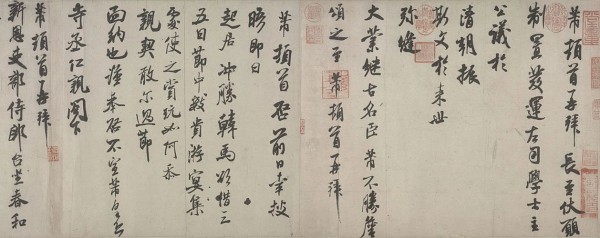 芾頓首再拜　長至伏願
制置發運左司學士主
公議於
清朝振
斯文於來世
彌縫
大業繼古名臣芾不勝瞻
頌之至芾頓首再拜
芾頓首啓前日幸披
晤即日
起居沖勝韓馬欲借三
五日節中數貴游宴集
處使之當玩如阿恭
親契敢爾過節
面納也謹奉啓不宣芾
寺丞仁親閣下
芾頓首再拜
新恩吏部侍郎台坐春和